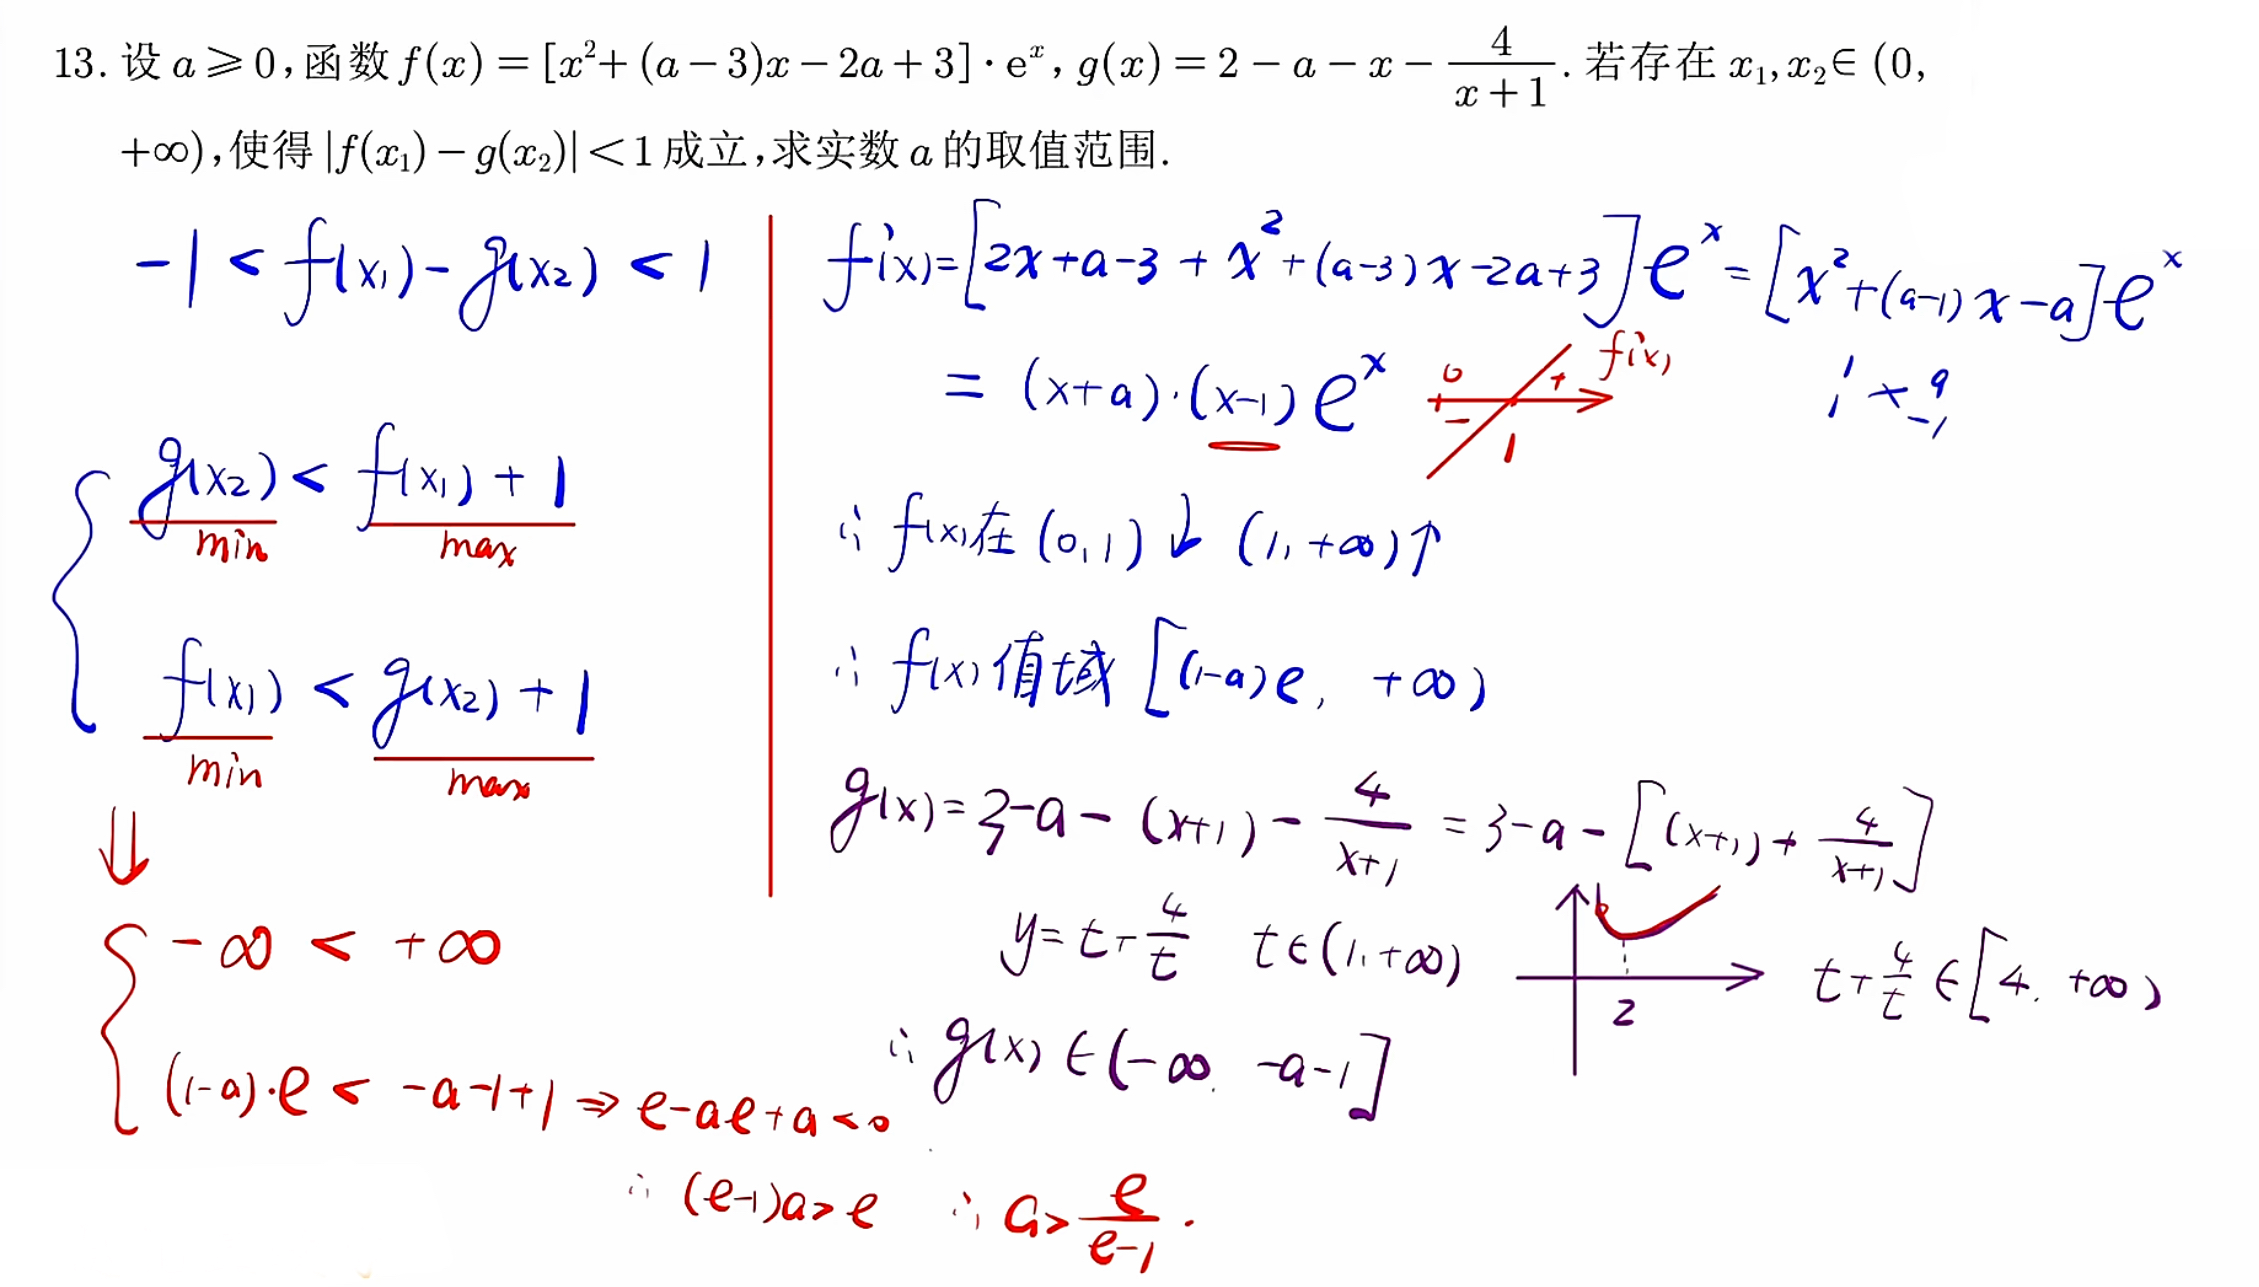 13. 设 a⩾0,函数 f(x)=[x²+(a−3)x−2a+3]·eˣ, g(x)=2−a−x−4/(x+1). 若存在 x₁,x₂∈(0,
+∞),使得|f(x₁)−g(x₂)|<1成立,求实数a的取值范围.
-1 < f(x₁) - g(x₂) < 1
g(x₂) < f(x₁) + 1
min max
f(x₁) < g(x₂) + 1
min max
⇓
-∞ < +∞
(1-a)·e < -a-1+1 ⇒ e-ae+a<0
∴ (e-1)a>e ∴ a> e/(e-1) .
f'(x)=[2x+a-3+x²+(a-3)x-2a+3]eˣ = [x²+(a-1)x-a]eˣ
= (x+a)·(x-1)eˣ
0 - + 1 f'(x)
1 a
1 -1
∴ f(x)在(0,1)↓ (1,+∞)↑
∴ f(x)值域 [(1-a)e, +∞)
g(x)=3-a-(x+1)-4/(x+1) = 3-a-[(x+1)+4/(x+1)]
y=t+4/t t∈(1,+∞) 2 t+4/t∈[4,+∞)
∴ g(x)∈(-∞, -a-1]